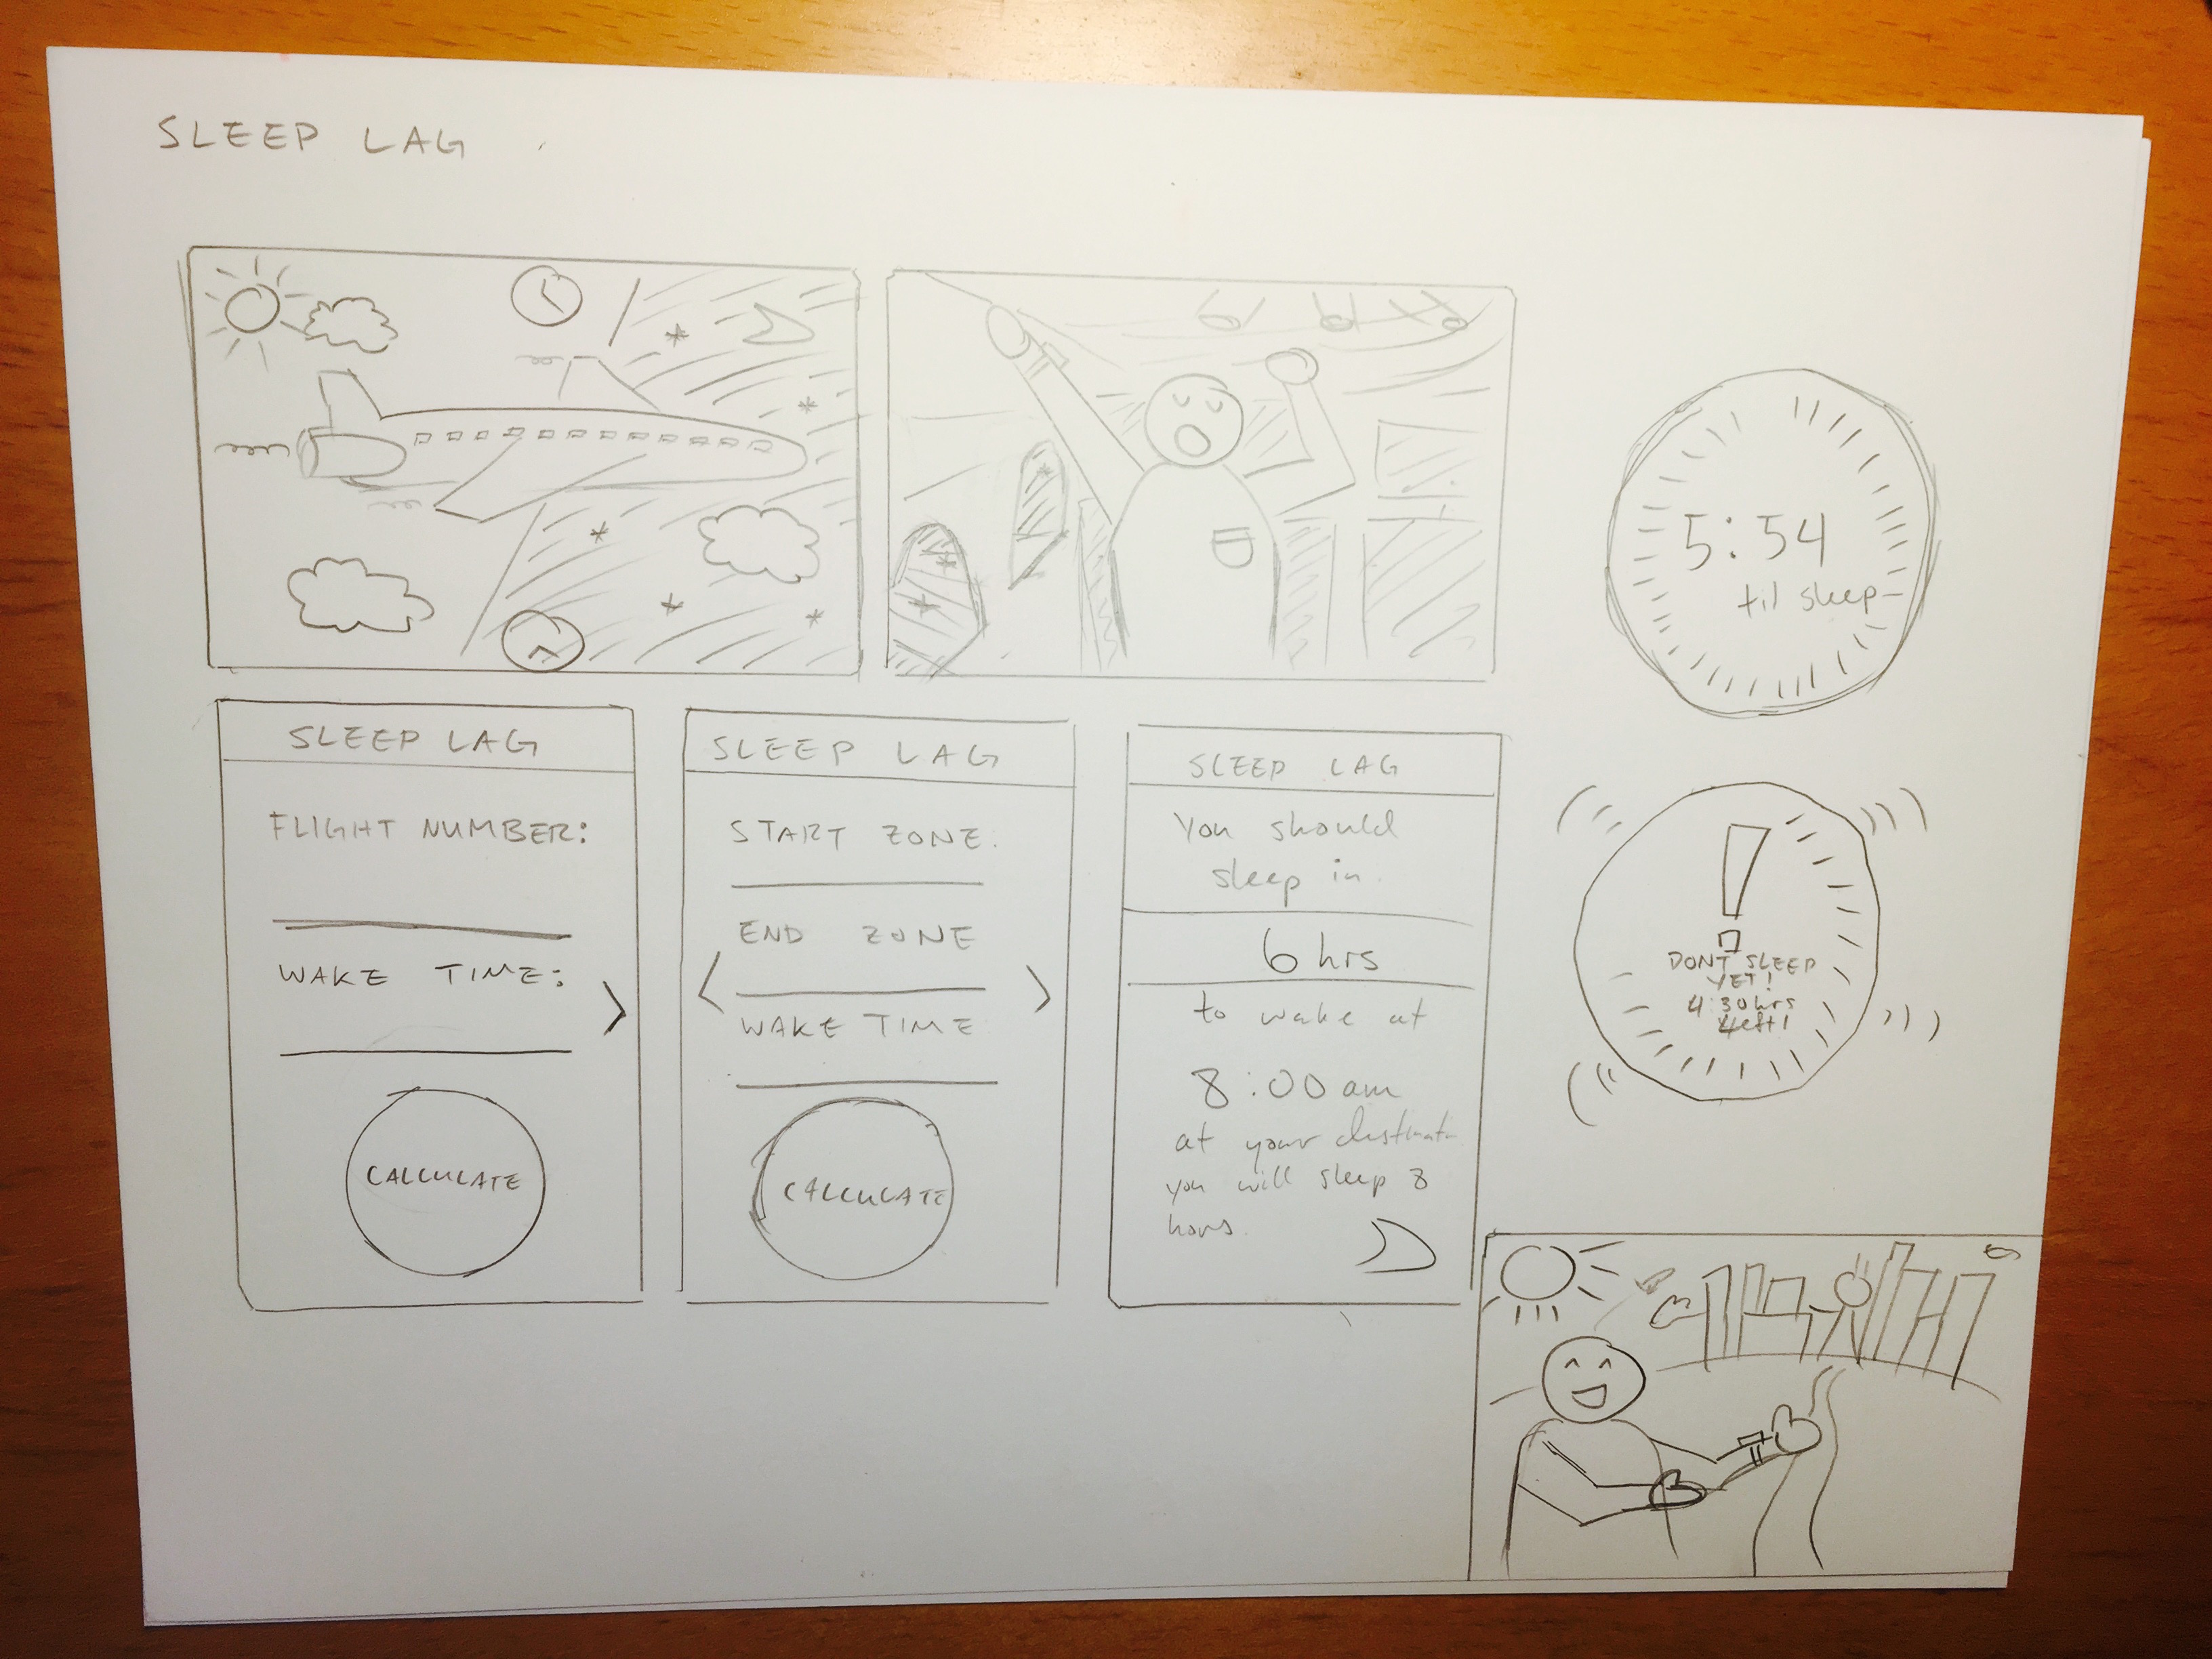 SLEEP LAG
5:54
til sleep
SLEEP LAG
FLIGHT NUMBER:
WAKE TIME:
>
CALCULATE
SLEEP LAG
START ZONE:
END ZONE
< >
WAKE TIME
CALCULATE
SLEEP LAG
You should
sleep in
6 hrs
to wake at
8:00 am
at your
you will sleep 8
hours.
!
DONT SLEEP
YET!
4:30hrs
left!